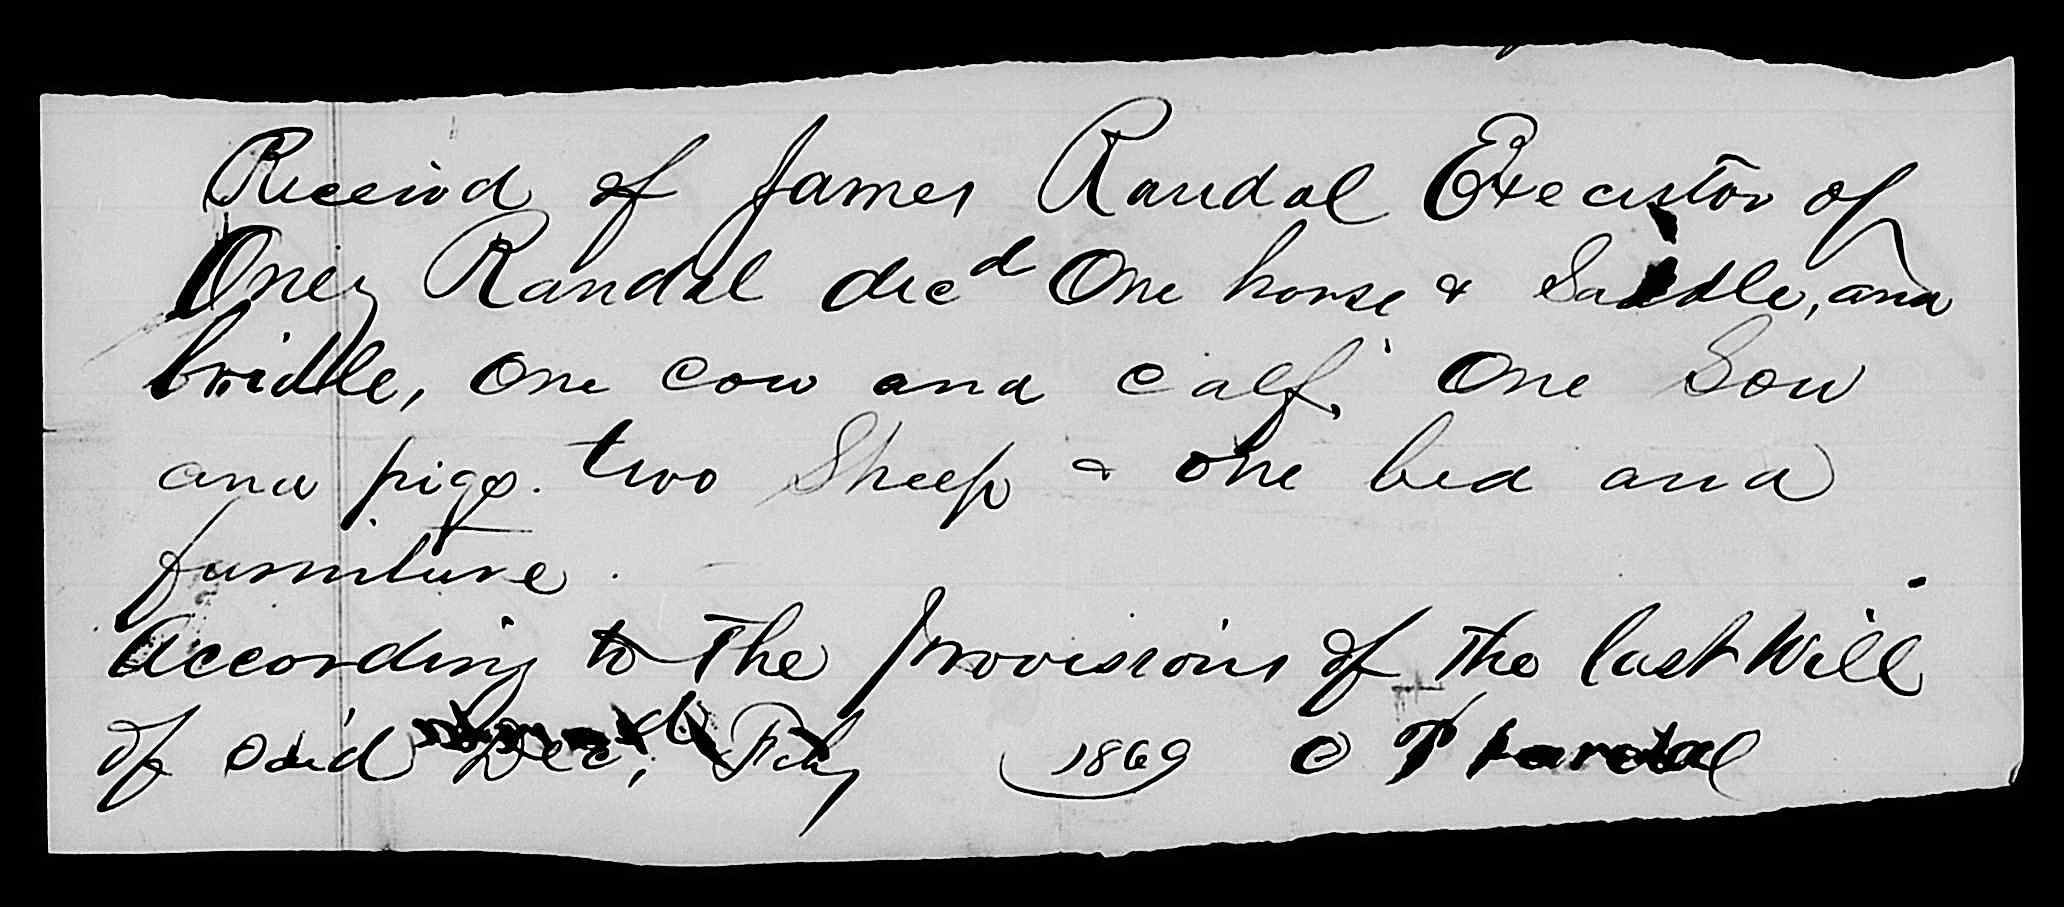 Receivd of James Randal Executor of
Oney Randal decd One horse & Saddle, and
bridle, one cow and calf, One Sow
and pigs. two Sheep & one bed and
furniture.
According to the provisions of the last Will
of said Dec, Feby 1869 C T Randal